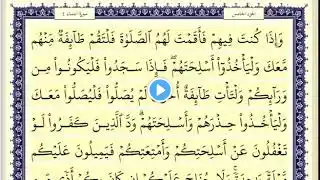 الجزء الخامس سورة النساء ٤
وَإِذَا كُنتَ فِيهِمْ فَأَقَمْتَ لَهُمُ الصَّلَوٰةَ فَلْتَقُمْ طَآئِفَةٌ مِّنْهُم
مَّعَكَ وَلْيَأْخُذُوٓا۟ أَسْلِحَتَهُمْ فَإِذَا سَجَدُوا۟ فَلْيَكُونُوا۟ مِن
وَرَآئِكُمْ وَلْتَأْتِ طَآئِفَةٌ لَمْ يُصَلُّوا۟ فَلْيُصَلُّوا۟ مَعَكَ
وَلْيَأْخُذُوا۟ حِذْرَهُمْ وَأَسْلِحَتَهُمْ وَدَّ الَّذِينَ كَفَرُوا۟ لَوْ
تَغْفُلُونَ عَنْ أَسْلِحَتِكُمْ وَأَمْتِعَتِكُمْ فَيَمِيلُونَ عَلَيْكُم